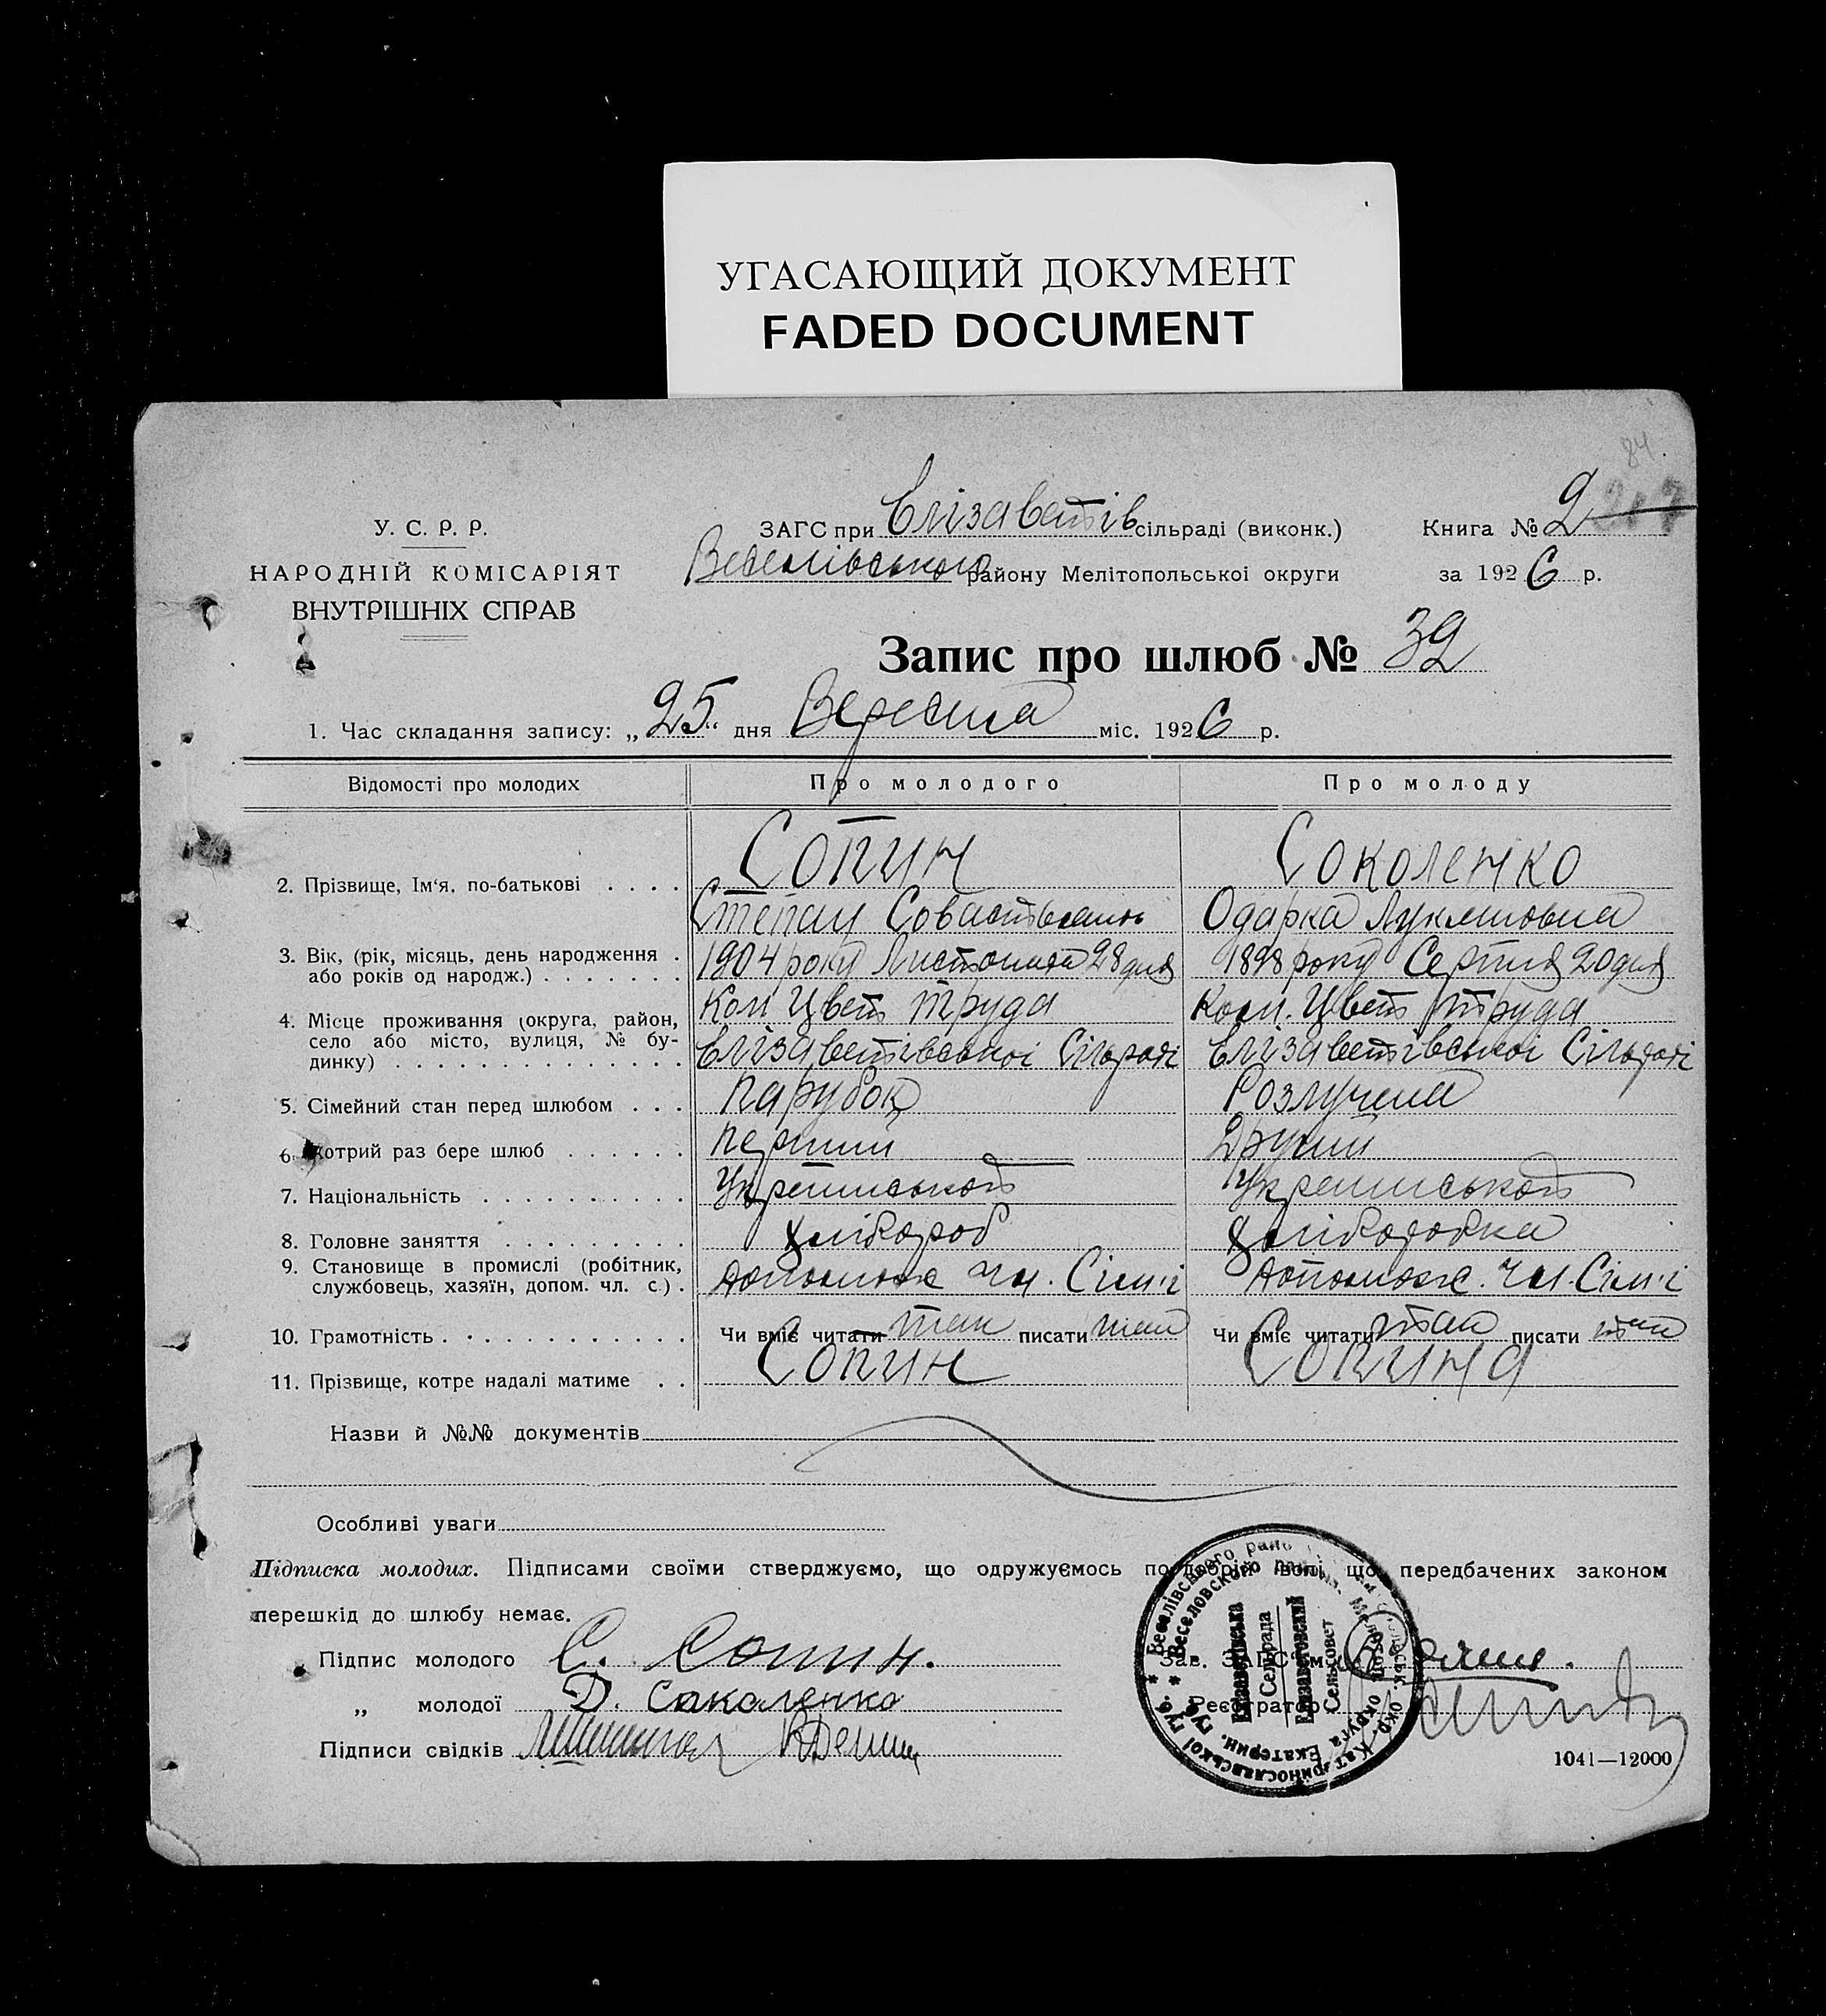 УГАСАЮЩИЙ ДОКУМЕНТ
FADED DOCUMENT
84.
У. С. Р. Р.
НАРОДНІЙ КОМІСАРІЯТ
ВНУТРІШНІХ СПРАВ
ЗАГС при Єлізаветів сільраді (виконк.)
Веселівського району Мелітопольської округи
Книга № 2 217
за 1926 р.
Запис про шлюб № 39
1. Час складання запису: „25“ дня Вересня міс. 1926 р.
Відомості про молодих Про молодого Про молоду
2. Прізвище, Ім'я, по-батькові . . . . Сопин Соколенко
Степан Одарка
3. Вік, (рік, місяць, день народження . 1904 року Листопада 28 дня 1898 року Серпня 20 дня
або років од народж.) . . . . . . .
4. Місце проживання (округа, район, Ком Цвет труда Ком. Цвет труда
село або місто, вулиця, № бу- Єлізаветівської Сільраді Єлізаветівської Сільраді
динку) . . . . . . . . . . . . . .
5. Сімейний стан перед шлюбом . . . Парубок Розлучена
6 Котрий раз бере шлюб . . . . . . Перший Другий
7. Національність . . . . . . . . . .
8. Головне заняття . . . . . . . . . хлібороб хліборобка
9. Становище в промислі (робітник, допомож чл. Сім'ї допомож. чл. Сім'ї
службовець, хазяїн, допом. чл. с.) .
10. Грамотність . . . . . . . . . . . Чи вміє читати так писати так Чи вміє читати так писати так
11. Прізвище, котре надалі матиме . . Сопин Сопина
Назви й №№ документів
Особливі уваги
Підписка молодих. Підписами своїми стверджуємо, що одружуємось по добрій волі, що передбачених законом
перешкід до шлюбу немає.
Підпис молодого С. Сопин.
„ молодої Д. Сокаленко
Підписи свідків
Зав. ЗАГС'ом
Реєстратор
Єлізаветівська
Сельрада
Елизаветовский
Сельсовет
1041—12000